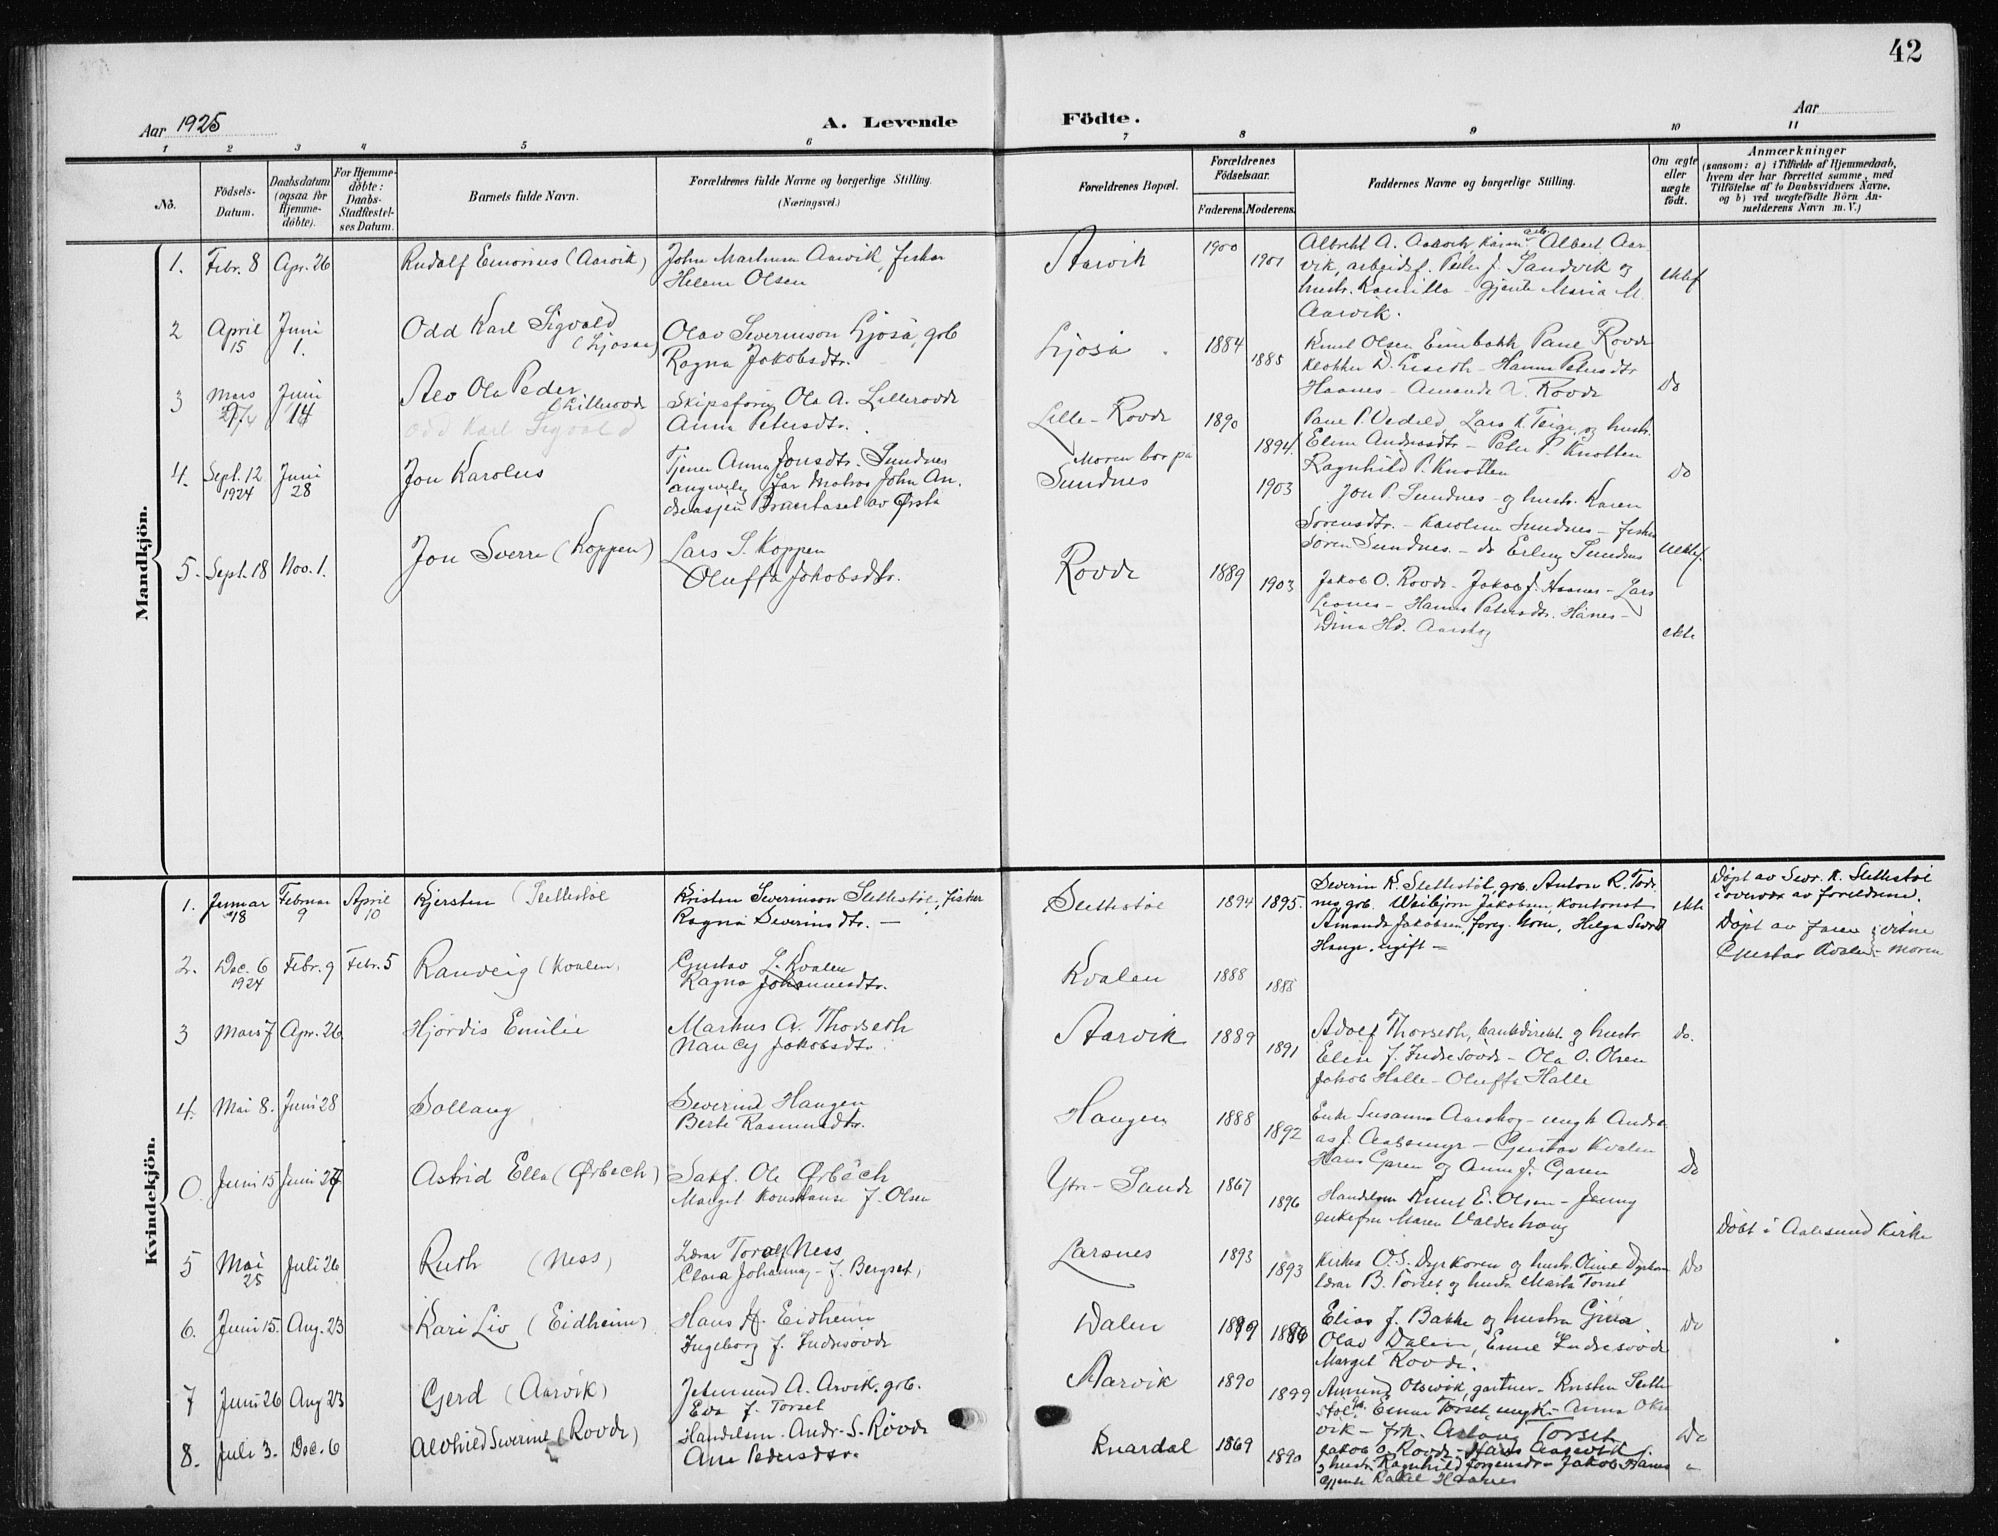 42
Aar 1925
A. Levende Födte.
Aar
1 2 3 4 5 6 7 8 9 10 11
No.
Födsels-Datum.
Daabsdatum (ogsaa for Hjemme-döbte).
For Hjemme-döbte: Daabs-Stadfæstel-ses Datum.
Barnets fulde Navn.
Forældrenes fulde Navne og borgerlige Stilling.
(Næringsvei.)
Forældrenes Bopæl.
Forældrenes Födselsaar.
Faderens. Moderens.
Faddernes Navne og borgerlige Stilling.
Om ægte eller uægte födt.
Anmærkninger
(saasom: a) i Tilfælde af Hjemmedaab,
hvem der har forrettet samme, med
Tilföielse af to Daabsvidners Navne,
og b) ved uægtefödte Börn An-
melderens Navn m. V.)
Mandkjön.
1. Febr. 8 Apr. 26 Rudolf (Aarvik) John Aarvik, fisker
Helene Olsen
Aarvik 1900 1901
Albert Aar-
vik, arbeidsf. Peder J. Sandvik og
hustr. Kamilla - gjente Maria M.
Aarvik.
2 April 15 Juni 1. Odd Karl Sigvald
Olav Severinson Ljoså, grb
Ragna Jakobsdtr.
Ljoså 1884 1885
Knut Olsen Rovde
Hanna Petersdtr
Haanes - Amanda Rovde
Do
3 Mars Juni 14 Ola Peder
Odd Karl Sigvald
Ola A. Lillerovde
Anna Petersdtr.
Lille-Rovde 1890 1894
Moren bor på
Lars K. Teige og hustr.
Peter P. Knotten
Ragnhild P. Knotten
Do
4. Sept. 12 1924 Juni 28 Jon Karolus
Anna Jonsdtr. Sundnes
far matros John An-
av Ørsta
Sundnes 1903
Jon P. Sundnes - og hustr. Karen
Sørensdtr. - Karoline Sundnes - fisker
Søren Sundnes - do Erling Sundnes
5. Sept. 18 Nov. 1. Jon Sverre (Koppen) Lars S. Koppen
Oluffa Jakobsdtr.
Rovde 1889 1903
Jakob O. Rovde - Jakob J. Haanes - Lars
Hanna Petersdtr. Hånes -
Dina Hd. Aarskog
ekte
Kvindekjön.
1. Januar 18 Februar 9 April 10 Kjersten (Slettestøl Kristen Severinson Slettestøl, fisker
Ragna Severinsdtr. -
Slettestøl 1894 1895
Severin K. Slettestøl, grb. Anton R.
Jakobsen, kontorist
Amanda Jakobsen, Helga
Hauge, ugift -
ekte
Døpt av Sevr. K. Slettestøl
i overvær av foreldrene.
2. Dec. 6 1924 Febr. 9 Febr. 5 Ranveig (Kvalen) Gustav L. Kvalen
Ragna Johannesdtr.
Kvalen 1888 1885
Døpt av faren; vitne
Gustav Kvalen - moren
3 Mars 7 Apr. 26 Hjørdis Emilie Markus A. Thorseth
Nancy Jakobsdtr.
Aarvik 1889 1891
Adolf Thorseth, bankdirekt. og hustr.
Elen J. Indresovde - Ola O. Olsen
Jakob Halle - Oluffa Halle
do.
4. Mai 8. Juni 28 Sollaug Severin Haugen
Berte Rasmusdtr.
Haugen 1888 1892
Enke Susanna Aarskog - ungk. Andre-
as J. Aasemyr - Gustav Kvalen
Hans Garen og Anna J. Garen
Do
0. Juni 15 Juni 24 Astrid Ella (Ørbech) Sakf. Ole Ørbech
Marget Konstanse J. Olsen
Ytre-Sande 1867 1896
Handelsm Knut E. Olsen - Jenny
enkefru Maren Valderhaug
Døbt i Aalesund Kirke
5 Mai 25 Juli 26 Ruth (Ness) Lærar Toralf Ness
Clara Johanna - J. Bergset,
Larsnes 1893 1893
Kirkes. O. S. Dyrkoren og hustr. Oline Dyrkorn
lærar B. Torset og hustr. Marta Torset
Do
6. Juni 15. Aug. 23 Kari Liv (Eidheim) Hans H. Eidheim
Ingeborg J. Indresovde
Dalen
Elias J. Bakke og hustru Gina
Olav Dalen, Indresovde
Marget Rovde.
Do
7 Juni 26 Aug 23 Gerd (Aarvik) A. Arvik, grb.
Eva J. Torset
Aarvik 1890 1899
gartner - Kristen Slette-
støl, Einar Torset, ungk. - Anna
vik - frk. Aslaug Torset
Do
8. Juli 3. Dec. 6 Alvhild Severine (Rovde) Handelsm. Andr. S. Rovde
Ane Pedersdtr.
Knardal 1869 1890
Jakob O. Rovde -
og hustr. Ragnhild Jørgensdtr - Jakob Hånes
gjente Rakel Haanes